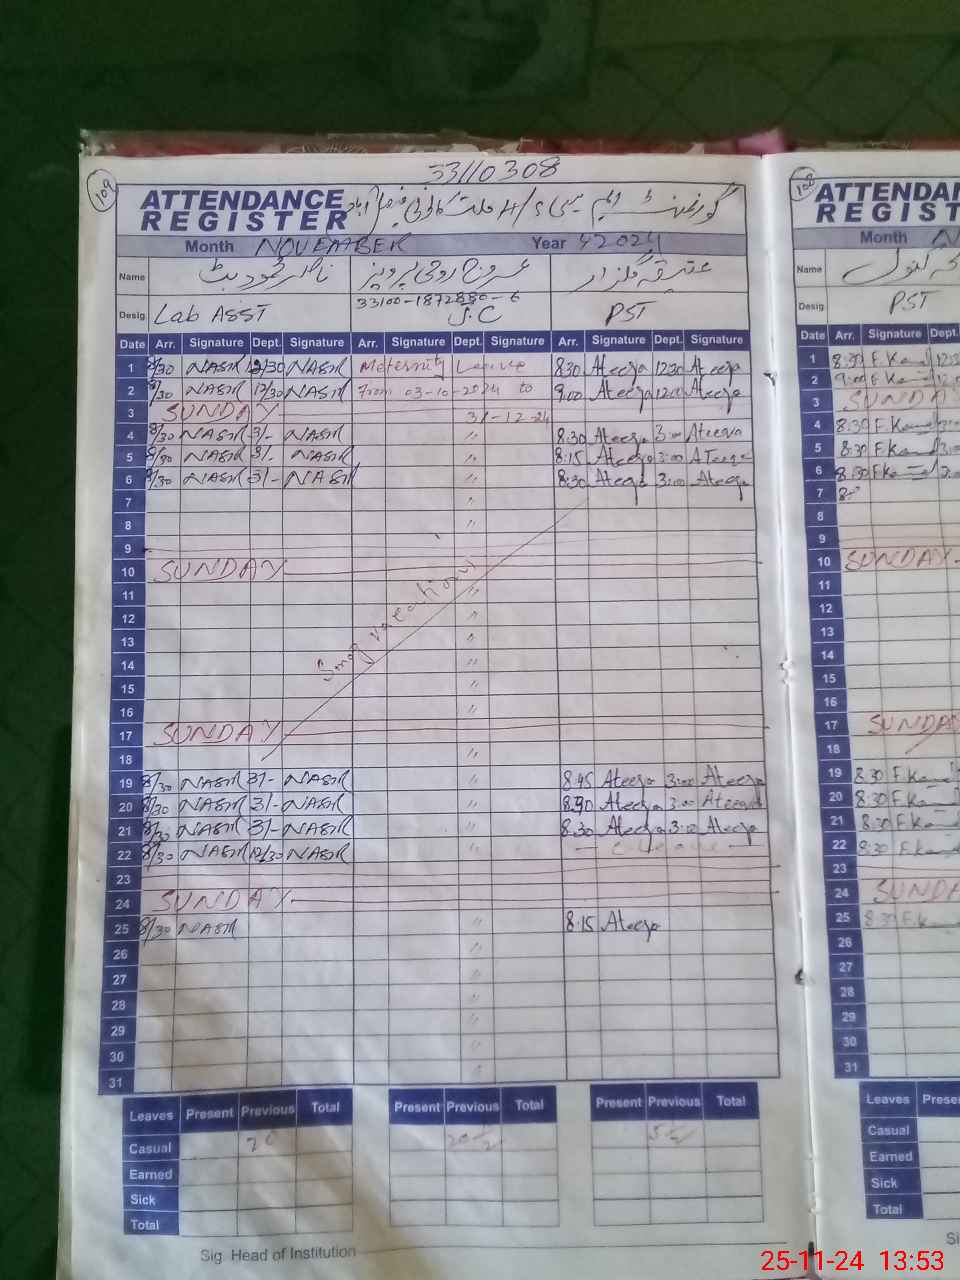 109
33110308
ATTENDANCE
REGISTER
Month NOVEMBER Year 2024
Name
Desig. Lab ASST 33100-1872880-6 J.C PST
Date Arr. Signature Dept. Signature Arr. Signature Dept. Signature Arr. Signature Dept. Signature
1 8/30 NASIR 12/30 NASIR Meternity Leave 8:30 Ateeqa 12:30 Ateeqa
2 9/30 NASIR 12/30 NASIR From 03-10-2024 to 9:00 Ateeqa 12:00 Ateeqa
3 SUNDAY 31-12-24
4 8/30 NASIR 3/- NASIR " 8:30 Ateeqa 3:00 Ateeqa
5 8/30 NASIR 3/- NASIR " 8:15 Ateeqa 3:00 ATeeqa
6 8/30 NASIR 3/- NASIR " 8:30 Ateeqa 3:00 Ateeqa
7 "
8 "
9
10 SUNDAY
11 "
12 "
13 "
14 "
15 "
16
Smog vacations
17 SUNDAY
18 "
19 8/30 NASIR 3/- NASIR " 8:45 Ateeqa 3:00 Ateeqa
20 8/30 NASIR 3/- NASIR " 8:30 Ateeqa 3:00 Ateeqa
21 8/30 NASIR 3/- NASIR " 8:30 Ateeqa 3:00 Ateeqa
22 8/30 NASIR 12/30 NASIR " C-Leave
23
24 SUNDAY
25 8/30 NASIR " 8:15 Ateeqa
26 "
27 "
28 "
29 "
30 "
31 "
Leaves Present Previous Total Present Previous Total Present Previous Total
Casual 20
Earned
Sick
Total
Sig. Head of Institution
108
ATTENDAN
REGIST
Month N
Name
Desig. PST
Date Arr. Signature Dept.
1 8:30 F.Kanwal
2 9:00 F.Kanwal
3 SUNDAY
4 8:30 F.Kanwal
5 8:30 F.Kanwal
6 8:30 F.Kanwal
7
8
9
10 SUNDAY
11
12
13
14
15
16
17 SUNDAY
18
19 8:30 F.Kanwal
20 8:30 F.Kanwal
21 8:30 F.Kanwal
22 8:30 F.Kanwal
23
24 SUNDAY
25 8:30 F.Kanwal
26
27
28
29
30
31
Leaves Prese
Casual
Earned
Sick
Total
25-11-24 13:53